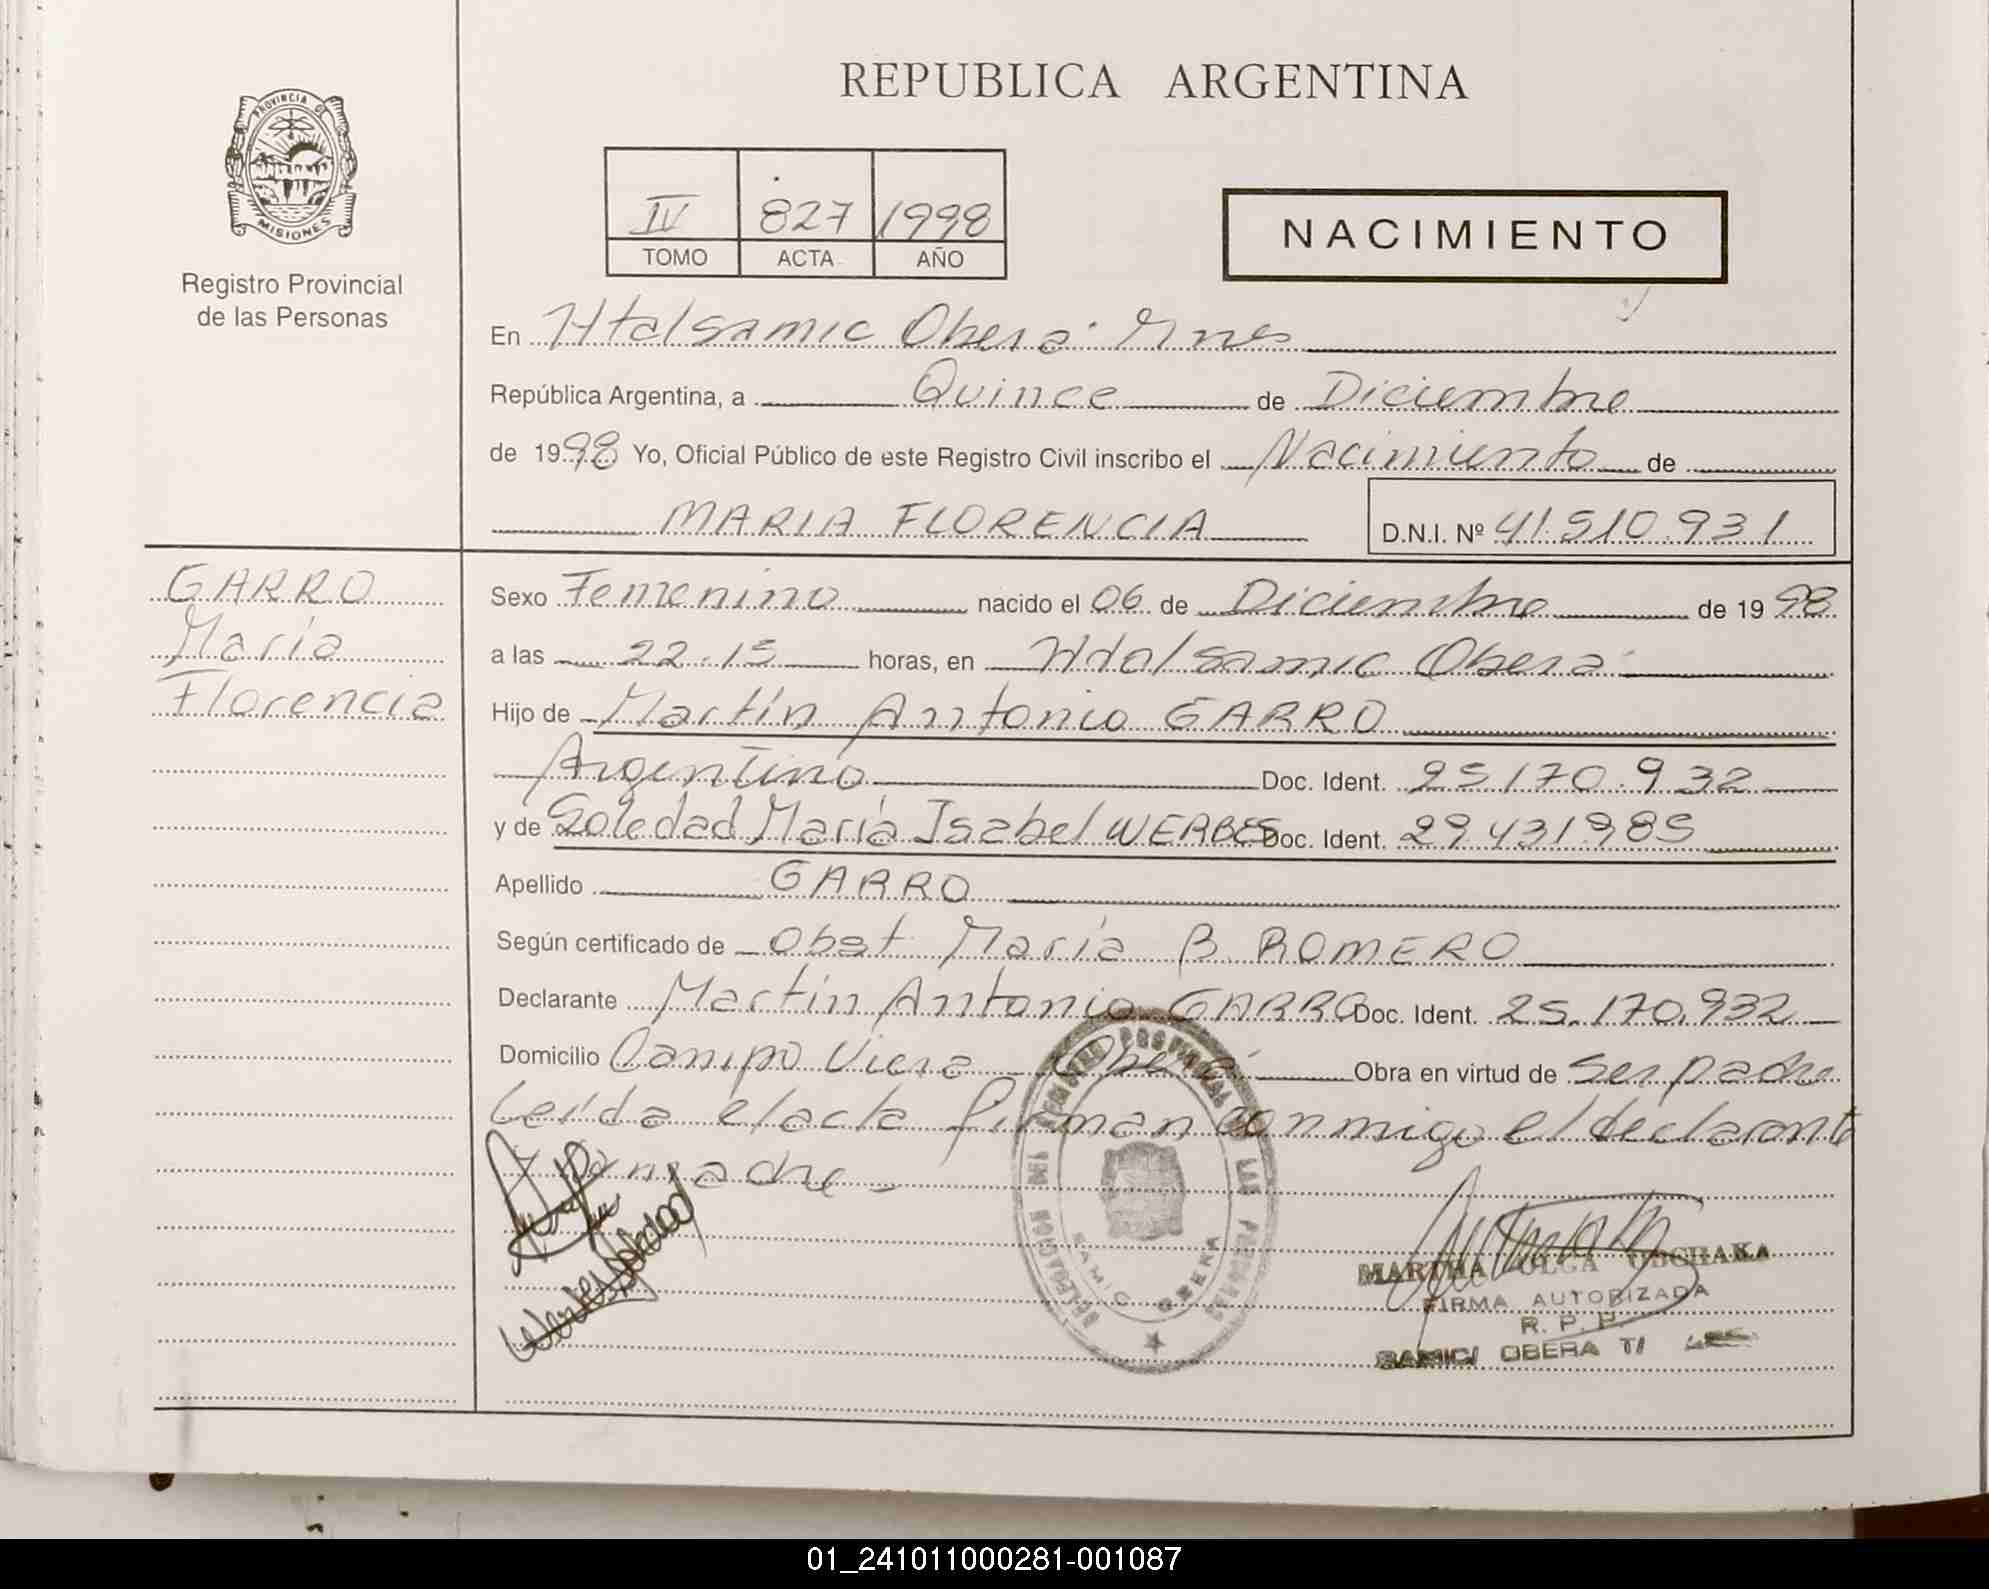 REPUBLICA ARGENTINA
PROVINCIA DE
MISIONES
Registro Provincial
de las Personas
IV 827 1998
TOMO ACTA AÑO
NACIMIENTO
En Htalsamic Oberá Mnes
República Argentina, a Quince de Diciembre
de 1998 Yo, Oficial Público de este Registro Civil inscribo el Nacimiento de
MARIA FLORENCIA D.N.I. Nº 41.510.931
GARRO
María
Florencia
Sexo Femenino nacido el 06 de Diciembre de 1998
a las 22.15 horas, en Htalsamic Oberá
Hijo de Martín Antonio GARRO
Argentino Doc. Ident. 25.170.932
y de Soledad María Isabel WERBES Doc. Ident. 29.431.985
Apellido GARRO
Según certificado de Obst María B. ROMERO
Declarante Martín Antonio GARRO Doc. Ident. 25.170.932
Domicilio Campo Viera Oberá Obra en virtud de ser padre
Leída el acta firman conmigo el declarante
y la madre
Werbes Soledad
REGISTRO PROVINCIAL DE LAS PERSONAS
DELEGACION
SAMIC OBERA
MARTHA OLGA
FIRMA AUTORIZADA
R. P. P.
SAMIC/ OBERA
01_241011000281-001087